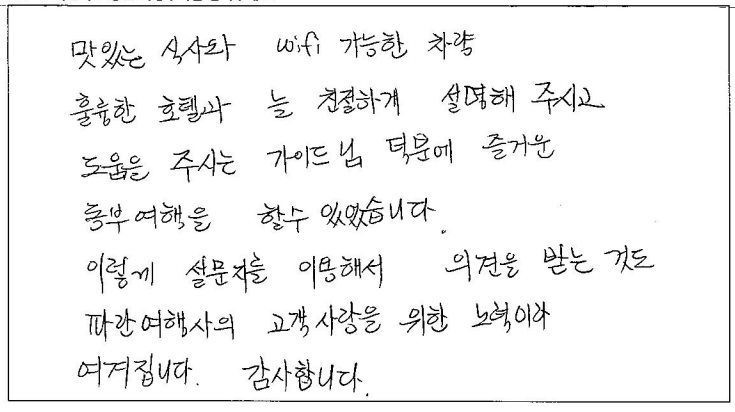 맛있는 식사와 wifi 가능한 차량
훌륭한 호텔과 늘 친절하게 설명해 주시고
도움을 주시는 가이드님 덕분에 즐거운
중부여행을 할수 있었습니다.
이렇게 설문지를 이용해서 의견을 받는 것도
파란여행사의 고객사랑을 위한 노력이라
여겨집니다. 감사합니다.